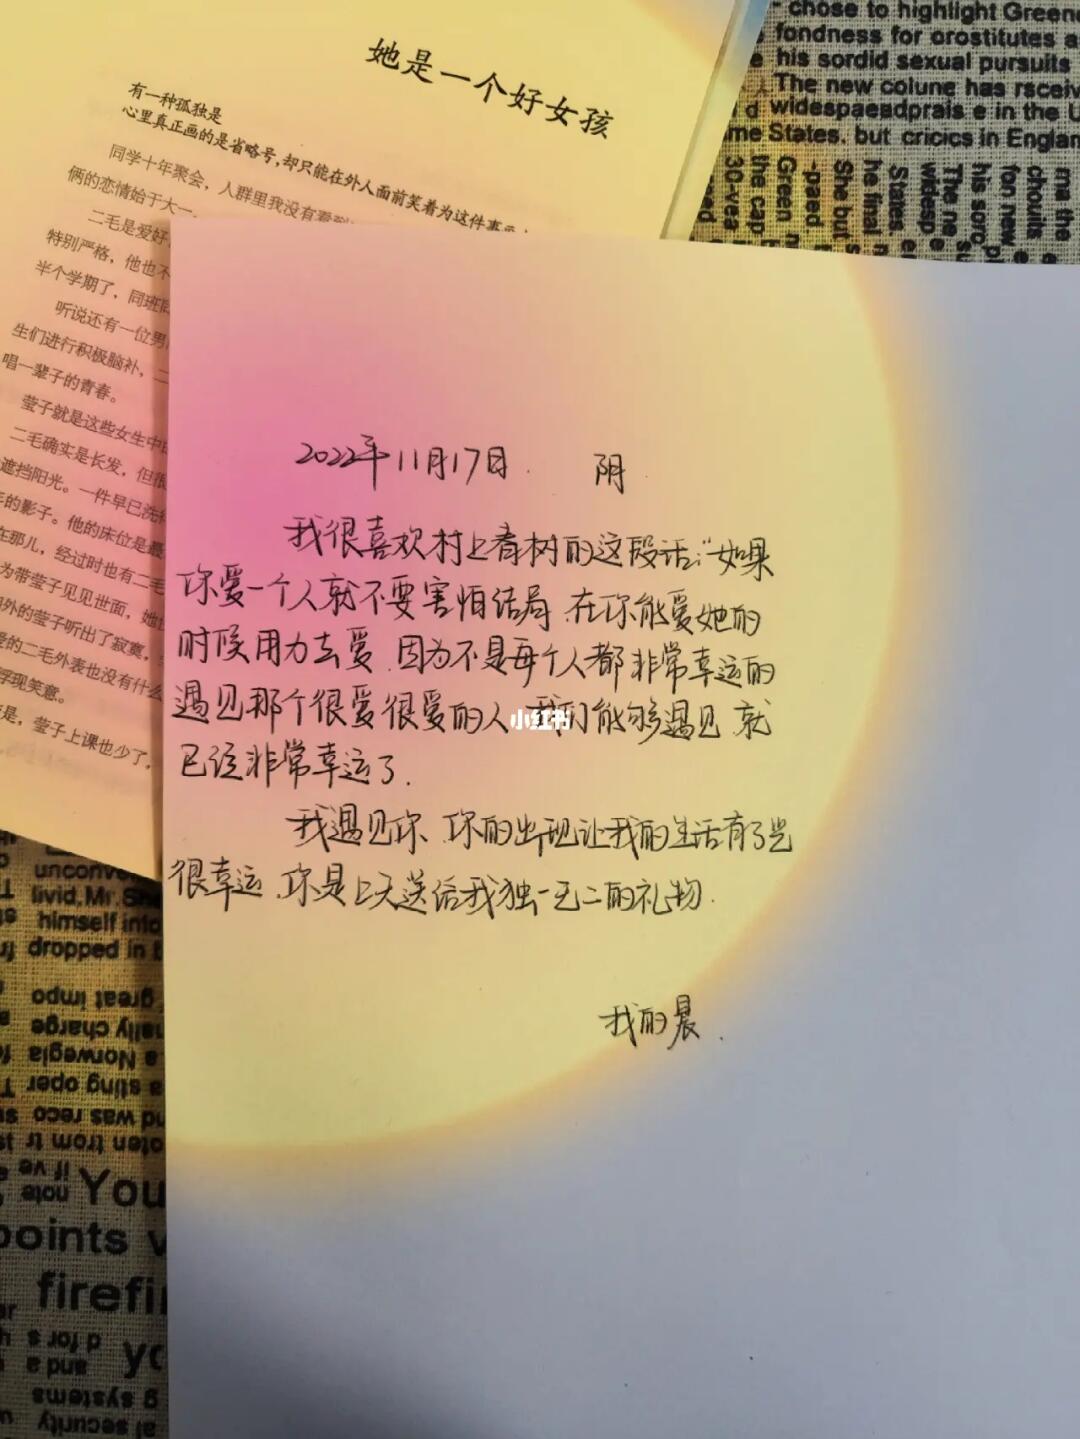 她是一个好女孩
有一种孤独是
心里真正画的是省略号,却只能在外人面前笑着为这件事
同学十年聚会，人群里我没有看到
俩的恋情始于大一
二毛是爱好
特别严格，他也不
半个学期了，同班同
听说还有一位男
生们进行积极脑补，二
唱一辈子的青春。
莹子就是这些女生中
二毛确实是长发，但很
遮挡阳光。一件早已洗得
年的影子。他的床位是最
在那儿，经过时也有二毛
为带莹子见见世面，她
外的莹子听出了寂寞，
爱的二毛外表也没有什么
浮现笑意。
是，莹子上课也少了，
2022年11月17日. 阴
我很喜欢村上春树的这段话:"如果
你爱一个人就不要害怕结局.在你能爱她的
时候用力去爱.因为不是每个人都非常幸运的
遇见那个很爱很爱的人.我们能够遇见.就
已经非常幸运了.
我遇见你.你的出现让我的生活有了光
很幸运.你是上天送给我独一无二的礼物.
我的晨.
小红书
- chose to highlight Green
fondness for orostitutes a
his sordid sexual pursuits
The new colune has rsceiv
d widespaendprais e in the U
me States. but cricics in England
unconv
livid, Mr. Sha
himself into
dropped in
great impo
ally charge
a Norwegia
sting oper
and was reco
oten from tr
You
points v
firefi